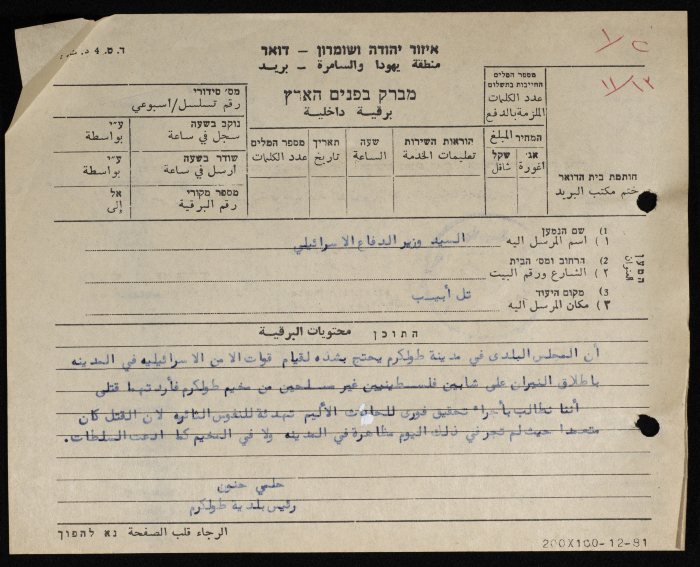 איזור יהודה ושומרון - דואר
منطقة يهودا والسامرة - بريد
מברק בפנים הארץ
برقية داخلية
מס׳ סידורי
رقم تسلسل/אسبوعي
נוקב בשעה ע״י
سجل في ساعة بواسطة
שודר בשעה ע״י
أرسل في ساعة بواسطة
מספר מקורי אל
رقم البرقية إلى
מספר המלים
عدد الكلمات
תאריך
تاريخ
שעה
الساعة
הוראות השירות
تعليمات الخدمة
מספר המלים החייבות בתשלום
عدد الكلمات الملزمة بالدفع
המחיר المبلغ
אג׳ שקל
اغورة شاقل
חותמת בית הדואר
ختم مكتب البريد
המען
العنوان
1) שם הנמען
١) اسم المرسل اليه السيد وزير الدفاع الاسرائيلي
2) הרחוב ומס׳ הבית
٢) الشارع ورقم البيت
3) מקום היעוד
٣) مكان المرسل اليه تل أبيب
התוכן محتويات البرقية
أن المجلس البلدى في مدينة طولكرم يحتج بشده لقيام قوات الامن الاسرائيليه في المدينه
باطلاق النيران على شابين فلسطينيين غير مسلحين من مخيم طولكرم فأردتهما قتلى
أننا نطالب بأجراء تحقيق فورى للحادث الأليم تهدئة للنفوس الثائره لان القتل كان
متعمدا حيث لم تجر في ذلك اليوم مظاهرة في المدينه ولا في المخيم كما ادعت السلطات.
حلمي حنون
رئيس بلدية طولكرم
الرجاء قلب الصفحة נא להפוך
200X100-12-81